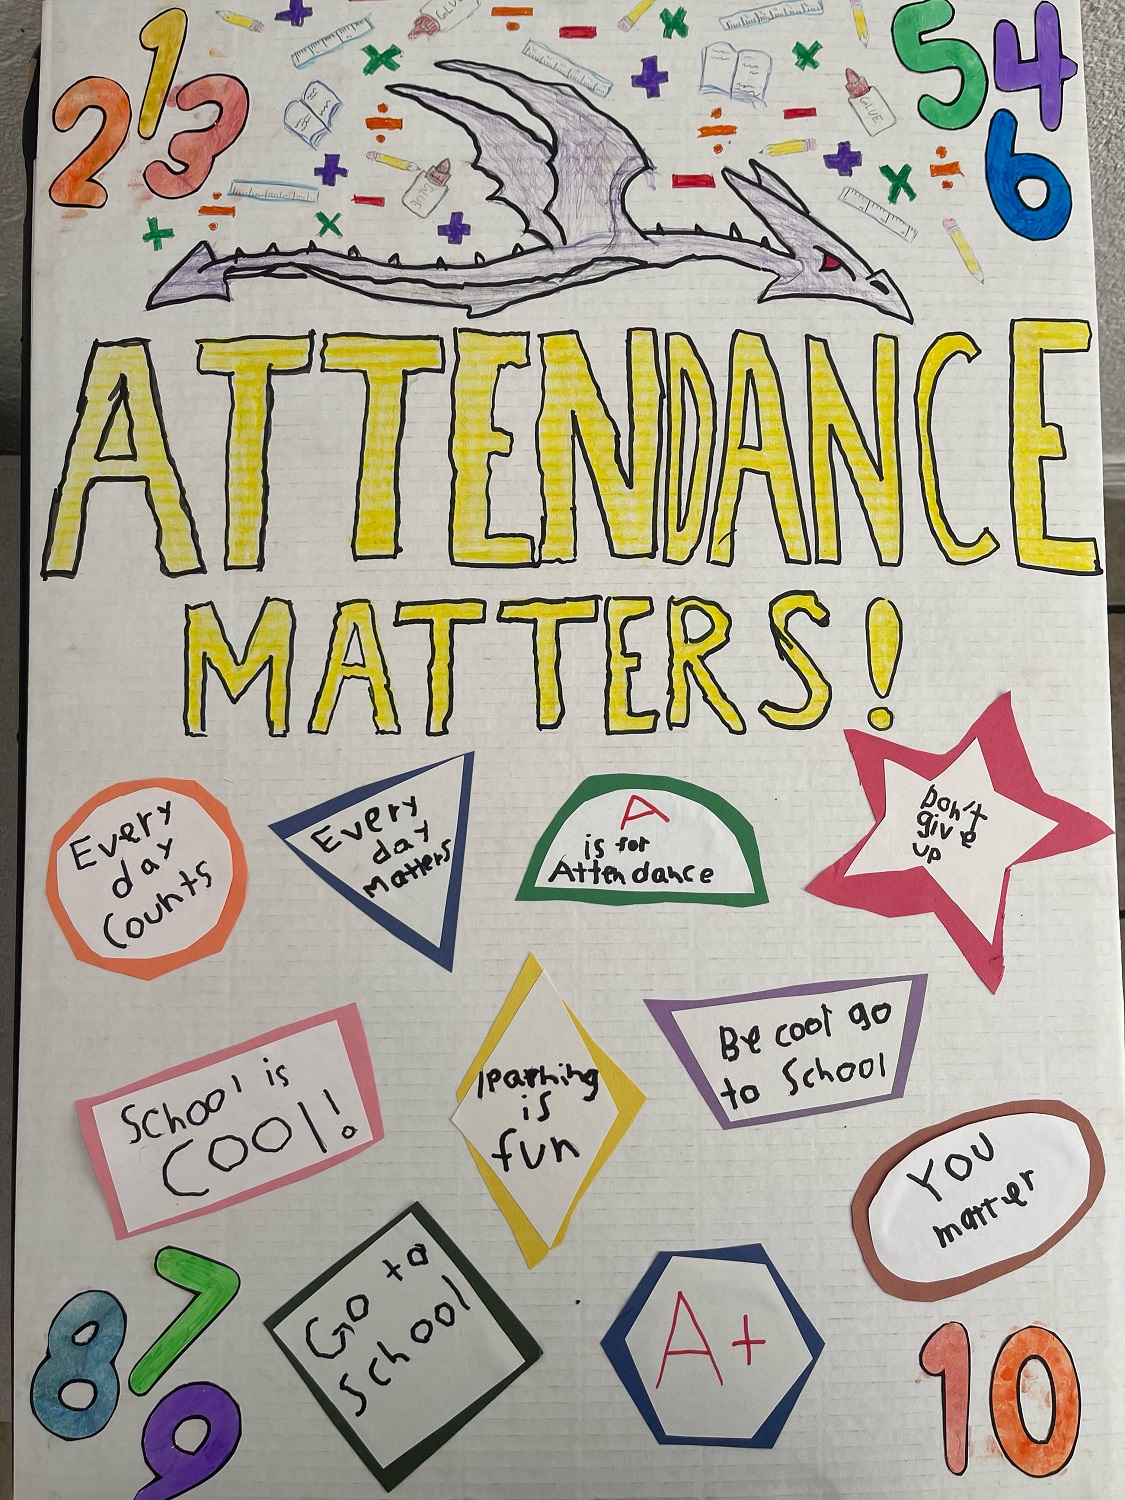 1
2
3
5
4
6
GLUE
GLUE
GLUE
ATTENDANCE
MATTERS!
Every
day
counts
Every
day
matters
A
is for
Attendance
Don't
give
up
School is
COOl!
learning
is
fun
Be cool go
to School
YOU
matter
Go to
School
A+
7
8
9
10